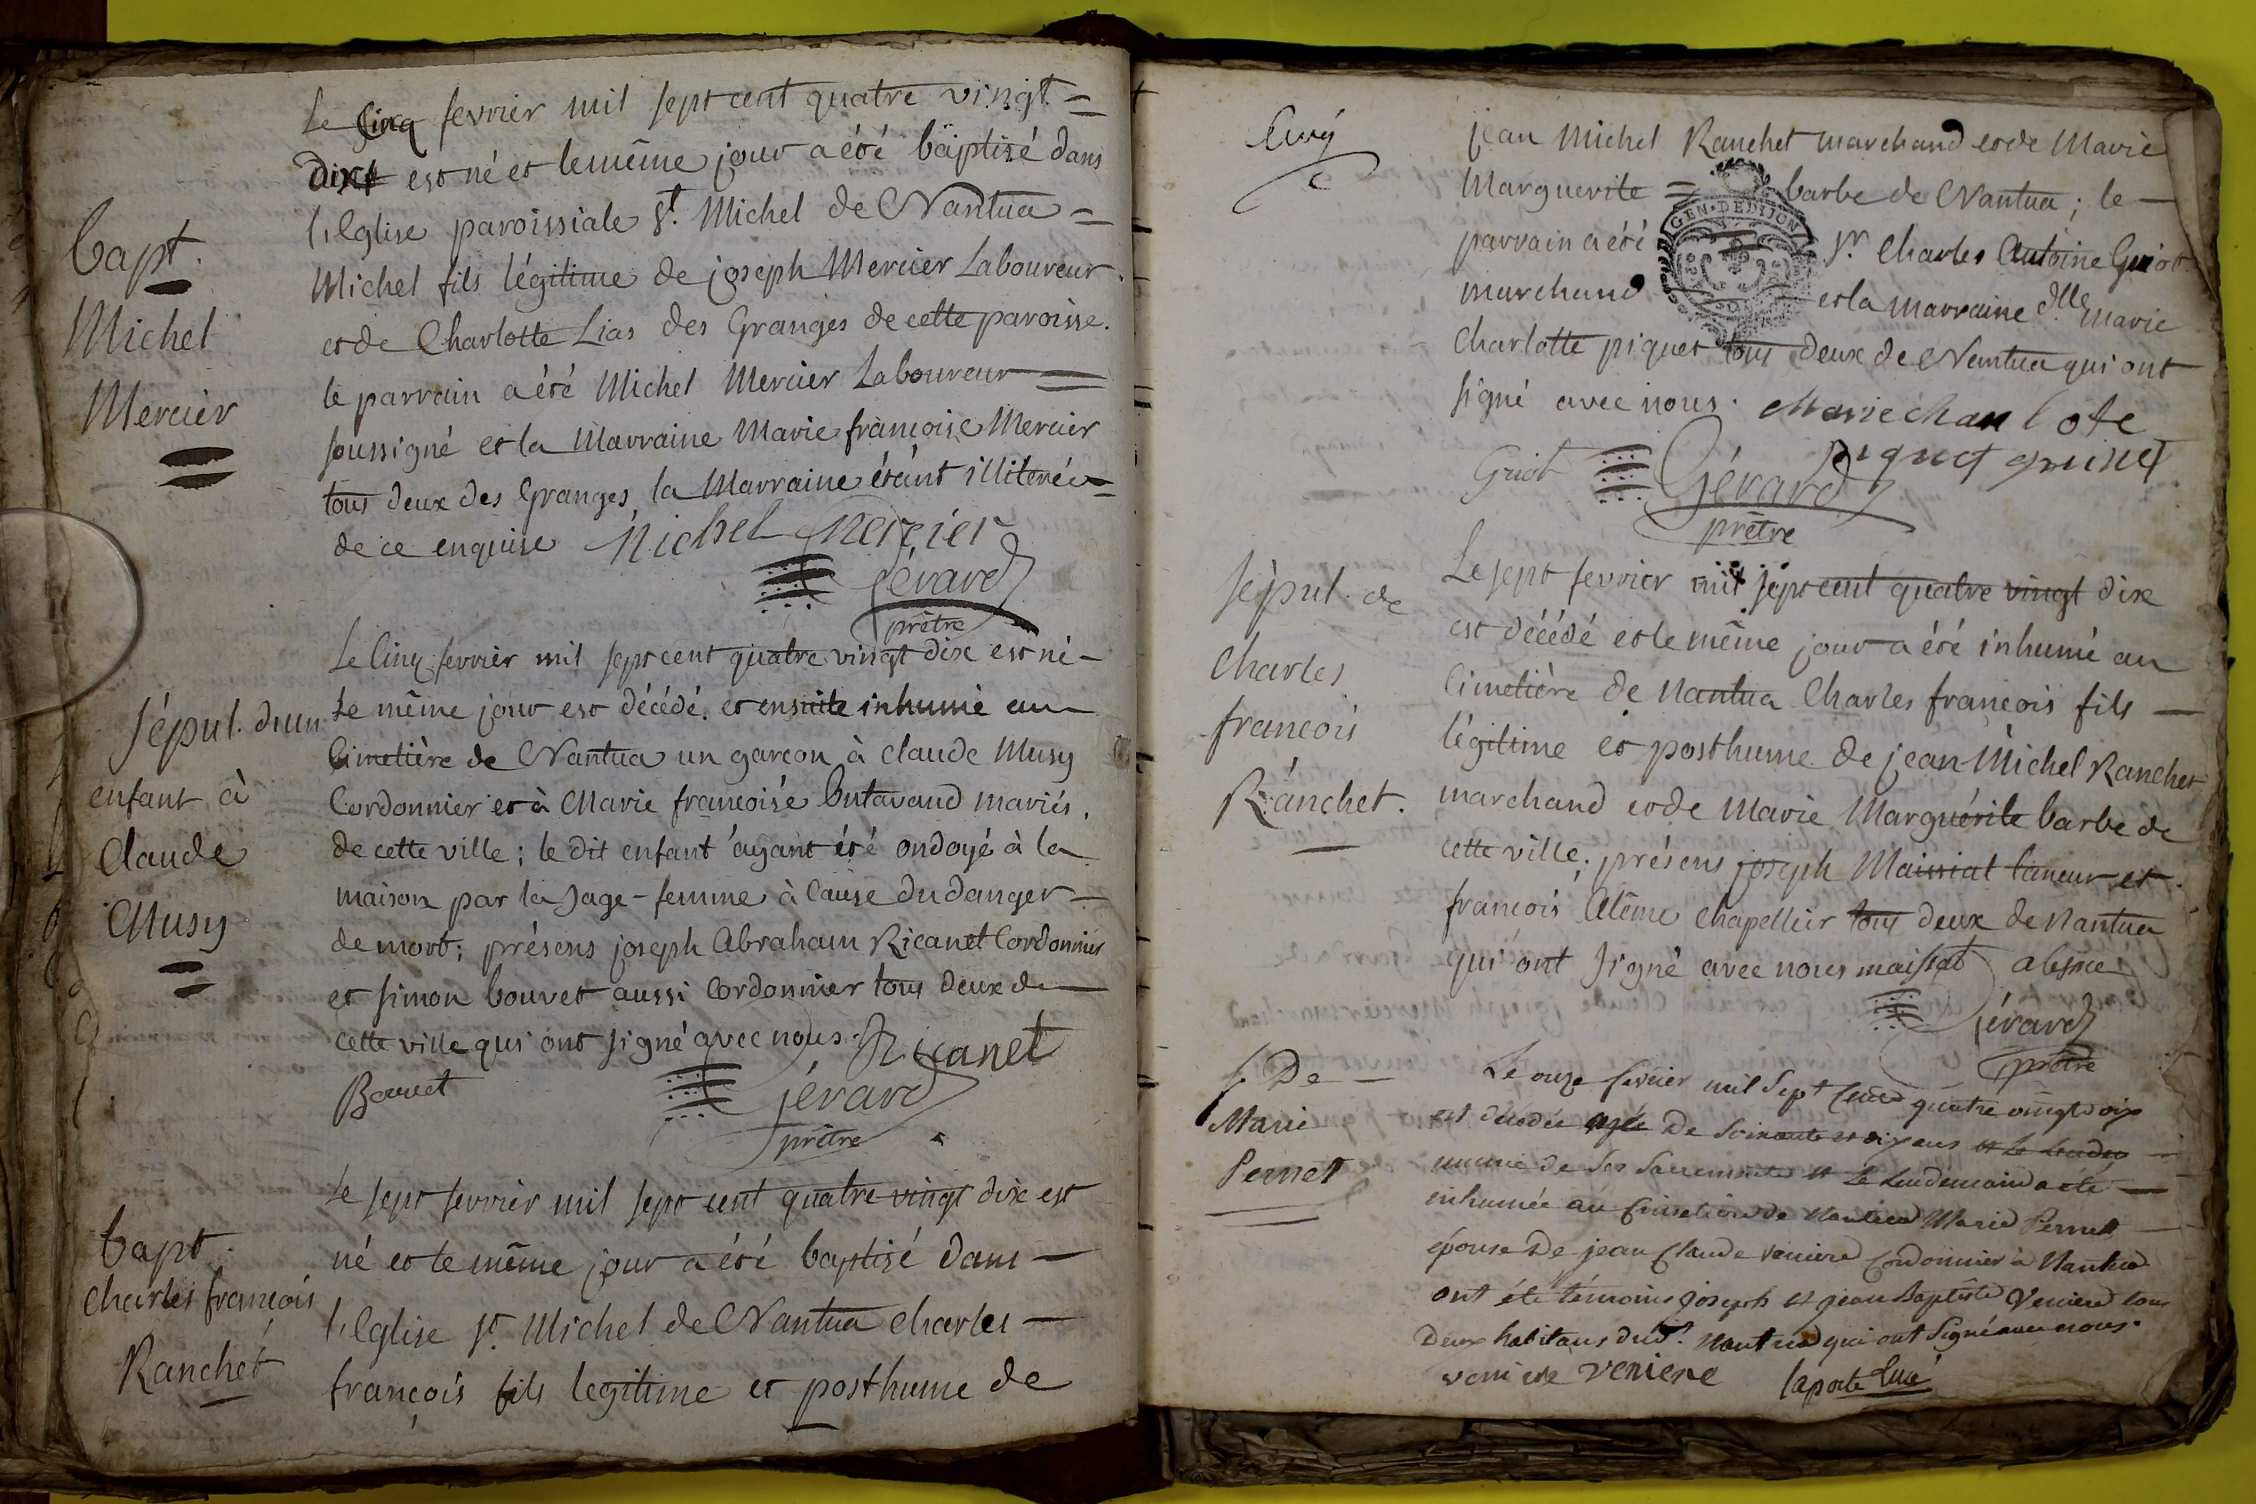 Le Cinq fevrier mil sept cent quatre vingt =
dix est né et le même jour a été baptisé dans
l'Eglise paroissiale St. Michel de Nantua =
Bapt.
Michel
Mercier
Michel fils légitime de joseph Mercier Laboureur
et de Charlotte Lias des Granges de cette paroisse.
le parrain a été Michel Mercier Laboureur
soussigné et la Marraine Marie françoise Mercier
tous deux des Granges, la Marraine étant illiterée =
de ce enquise Michel Mercier
Gérard
prêtre
Sépul. d'un
enfant à
Claude
Musy
Le Cinq fevrier mil sept cent quatre vingt dix est né -
Le même jour est décédé. et ensuite inhumé au
Cimetière de Nantua un garcon à Claude Musy
Cordonnier et à Marie francoise Butavand mariés,
de cette ville ; le dit enfant ayant été ondoyé à la
maison par la Sage-femme à Cause du danger -
de mort ; présens joseph Abraham Ricanet Cordonnier
et Simon bouvet aussi Cordonnier tous deux de
cette ville qui ont signé avec nous. Ricanet
Bouvet Gérard
prêtre
Bapt.
Charles françois
Ranchet
Le sept fevrier mil sept cent quatre vingt dix est
né et le même jour a été baptisé dans -
l'Eglise St. Michel de Nantua Charles -
françois fils legitime et posthume de
jean Michel Ranchet marchand et de Marie
Marguerite = barbe de Nantua ; le -
parrain a été Sr. Charles Antoine Guiot
GEN·DE DIJON
marchand et la Marraine dlle Marie
Charlotte piquet tous deux de Nantua qui ont
signé avec nous. Marie charlote
piquet
Guiot Gérard
prêtre
Sépul. de
Charles
francois
Ranchet.
Le sept fevrier mil sept cent quatre vingt dix
est décédé et le même jour a été inhumé au
Cimetière de Nantua Charles francois fils -
légitime et posthume de jean Michel Ranchet
marchand et de Marie Marguérite barbe de
cette ville ; présens joseph Maissiat taneur et
francois Alême chapellier tous deux de Nantua
qui ont signé avec nous maissiat alesme
Gérard
prêtre
S. De -
Marie
Pernet
Le onze fevrier mil Sept Cent quatre vingt dix
est décédée agée De Soixante et dix ans et Le Lendem
munie de Ses Sacrements et Le Lendemain a été -
inhumée au Cimetière de Nantua Marie Pernet
épouse De jean Claude veniere Cordonnier à Nantua
ont été témoins joseph et jean Baptiste Veniere tous
Deux habitans dudt. Nantua qui ont Signé avec nous.
veniere veniere laporte Curé